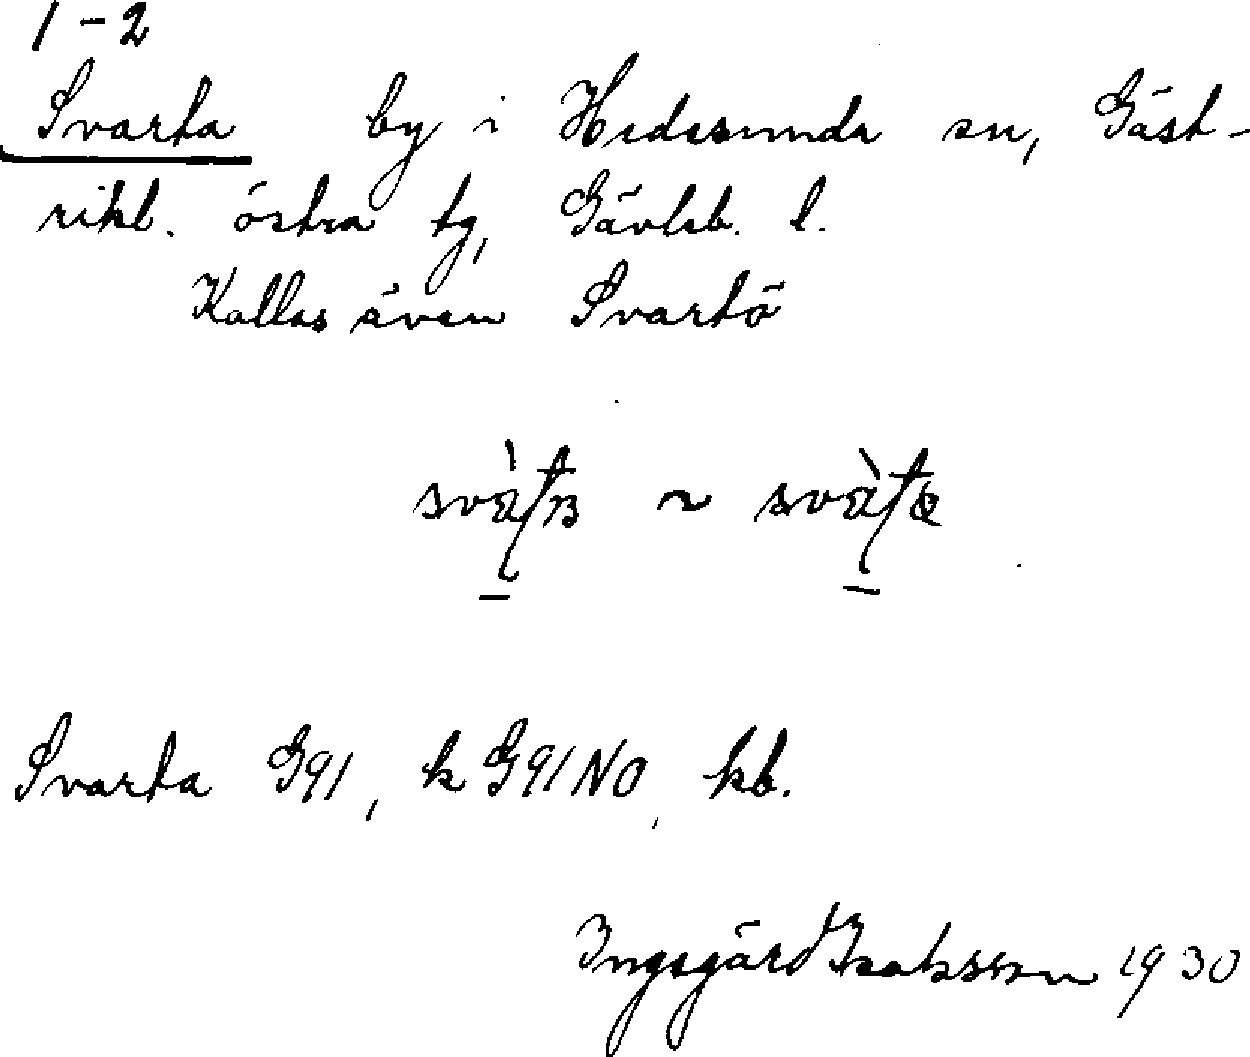 1-2
Svarta by i Hedesunda sn, Gäst-
rikl. östra tg, Gävleb. l.
Kallas även Svartö
~
Svarta G91, k G91NO, kb.
Ingegärd Isaksson 1930